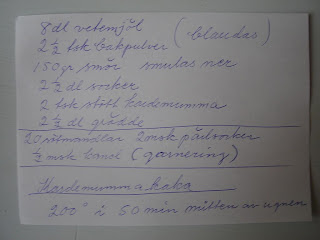 8 dl vetemjöl
2 ½ tsk bakpulver (blandas)
150 gr smör smulas ner
2 ½ dl socker
2 tsk stött kardemumma
2 ½ dl grädde
20 sötmandlar 2 msk pärlsocker
½ msk kanel (garnering)
Kardemumma kaka
200° i 50 min mitten av ugnen